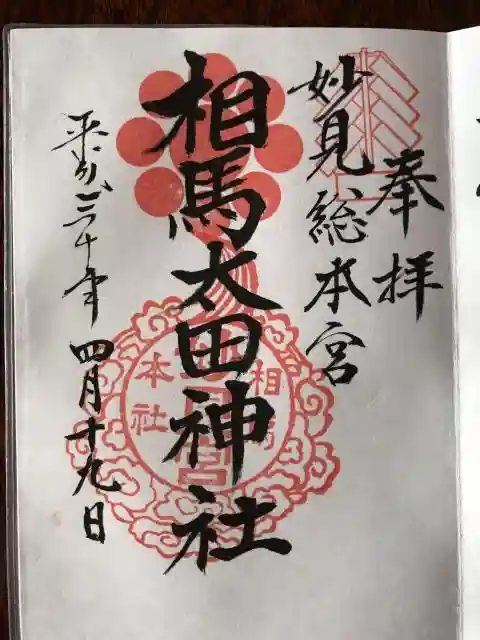 奉拝
妙見総本宮
相馬太田神社
平成三十年 四月十九日
相馬
本社